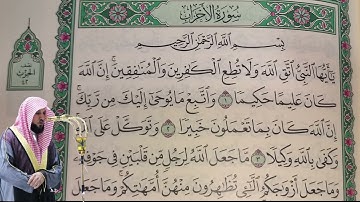 سُورَةُ الأَحْزَابِ
بِسْمِ اللَّهِ الرَّحْمَٰنِ الرَّحِيمِ
يَٰٓأَيُّهَا ٱلنَّبِىُّ ٱتَّقِ ٱللَّهَ وَلَا تُطِعِ ٱلْكَٰفِرِينَ وَٱلْمُنَٰفِقِينَ ۗ إِنَّ ٱللَّهَ
كَانَ عَلِيمًا حَكِيمًا ١ وَٱتَّبِعْ مَا يُوحَىٰٓ إِلَيْكَ مِن رَّبِّكَ ۚ
إِنَّ ٱللَّهَ كَانَ بِمَا تَعْمَلُونَ خَبِيرًا ٢ وَتَوَكَّلْ عَلَى ٱللَّهِ ۚ
وَكَفَىٰ بِٱللَّهِ وَكِيلًا ٣ مَّا جَعَلَ ٱللَّهُ لِرَجُلٍ مِّن قَلْبَيْنِ فِى جَوْفِهِۦ ۚ
وَمَا جَعَلَ أَزْوَٰجَكُمُ ٱلَّٰٓـِٔى تُظَٰهِرُونَ مِنْهُنَّ أُمَّهَٰتِكُمْ ۚ وَمَا جَعَلَ